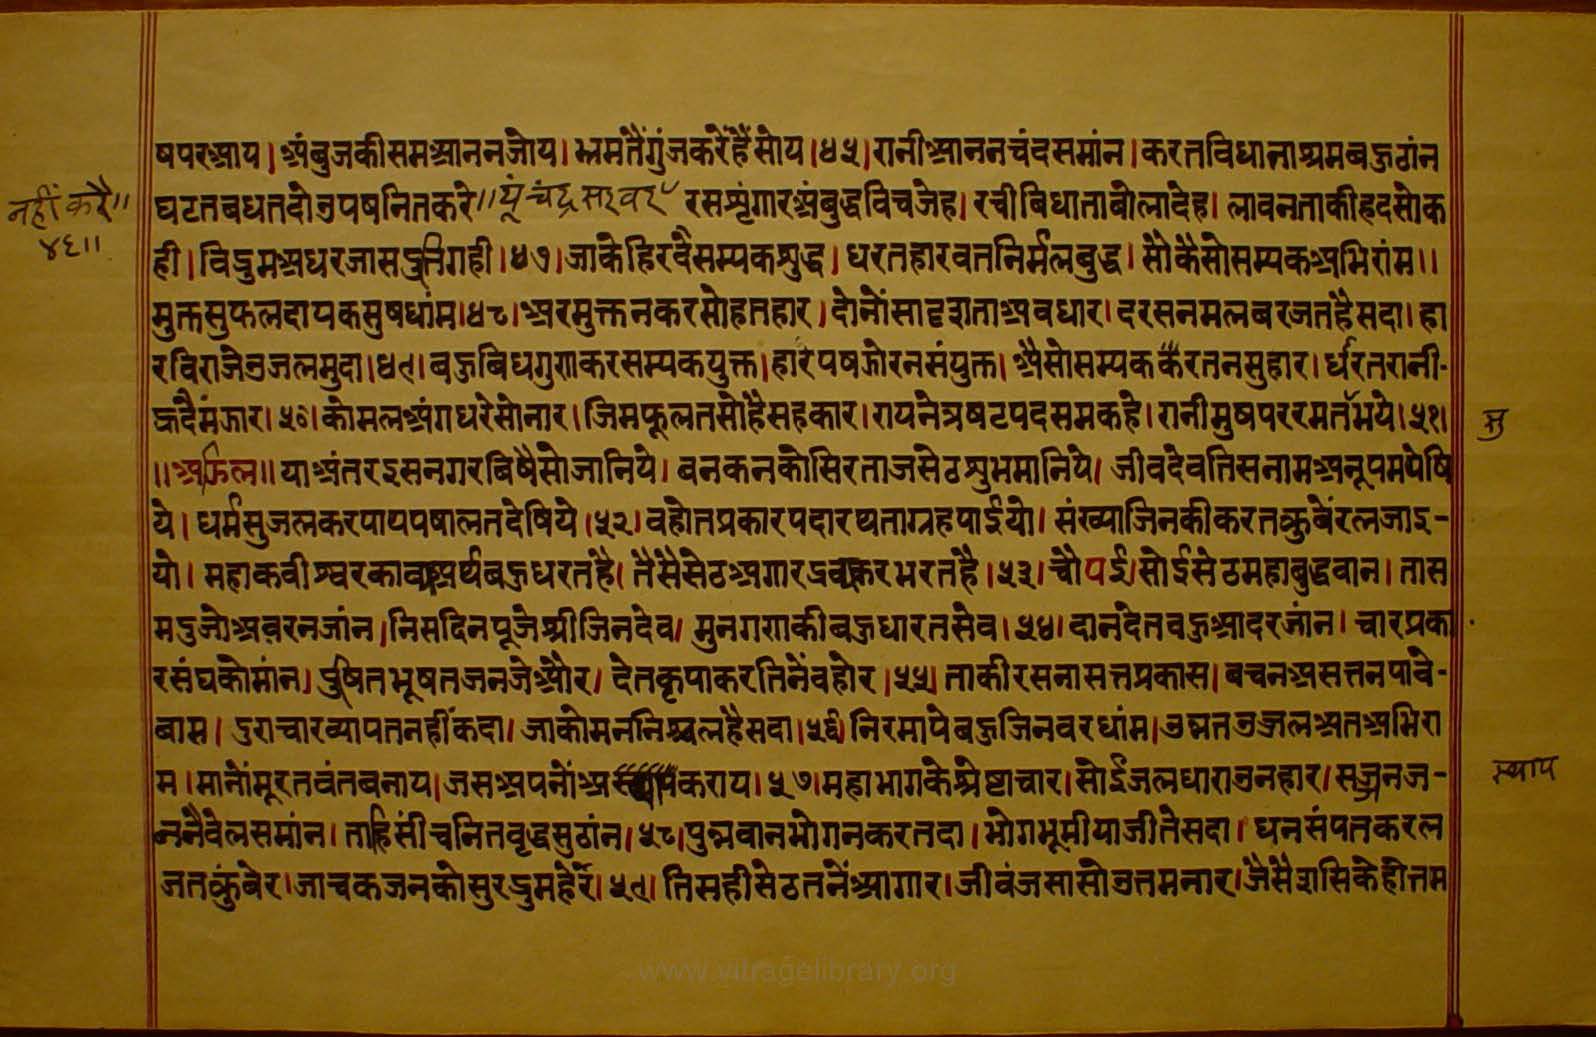 षपरआय। अंबुजकीसमआननजोय। भ्रमतैंगुंजकरेंहैंसोय।४५। रानीआननचंदसमांन। करतविधाताश्रमबहुठांन
घटतबधतदोउपषनितकरे॥यूं चंद्र सरवर रसशृंगारअंबुद्धविचजेह। रचीबिधाताबोलादेह। लावनताकीह्रदसोक
नहीं करै॥ ४६॥
ही। विद्रुमअधरजास गही।४७। जाकेहिरवैसम्यकशुद्ध। धरतहारवतनिर्मलबुद्ध। सोकैसोसम्यकअभिरांम॥
मुक्तसुफलदायकसुषधांम।४८। अरमुक्तनकरसोहतहार। दोनोंसादृशताअवधार। दरसनमलबरजतहैसदा। हा
रविराजेउजलमुदा।४९। बहुबिधगुणकरसम्यकयुक्त। हारेपषडोरनसंयुक्त। अैसोसम्यक रतनसुहार। धरतरानी-
ह्रदैमंझार।५०। कोमलअंगधरेसोनार। जिमफूलतसोहैसहकार। रायनेत्रषटपदसमकहे। रानीमुषपररमतभये।५१।
॥अडिल॥ याअंतरइसनगरबिषैसोजानिये। बनकनकोसिरताजसेठशुभमानिये। जीवदेवतिसनामअनूपमपेषि
ये। धर्मसुजलकरपापपषालतदेषिये।५२। वहोतप्रकारपदारथताग्रहपाईयो। संख्याजिनकीकरतकुबेंरलजाइ-
यो। महाकवीश्वरकाव्यअर्थबहुधरतहै। तैसैंसेठअगारद्रव्यकरभरतहै।५३। चौपई। सोईसेठमहाबुद्धवान। तास
मदुजोअवरनजांन। निसदिनपूजेश्रीजिनदेव। मुनगणकीबहुधारतसेव।५४। दानदेतवहुआदरजांन। चारप्रका
रसंघकोमांन। भूषतजनजेऔर। देतकृपाकरतिनेंवहोर।५५। ताकीरसनासत्तप्रकास। बचनअसत्तनपावे-
बास। दुराचारव्यापतनहींकदा। जाकोमननिश्चलहैसदा।५६। निरमापेबहुजिनवरधांम। उन्नतउजलअतअभिरा
म। मानोंमूरतवंतबनाय। जसअपनों कराय।५७। महाभागकेश्रेष्टाचार। सोईजलधाराउनहार। सज्जनज-
स्थाप
ननैवेलसमांन। ताहिसींचनितवृद्धसुठांन।५८। पुन्नवानभोगनकरतदा। भोगभूमीयाजीतेसदा। धनसंपतकरल
जतकुंबेर। जाचकजनकोसुरद्रुमहेर।५९। तिसहीसेठतनेंआगार। जीवंजसासोउतमनार। जैसैंशसिकेहीतम
www.vitragelibrary.org